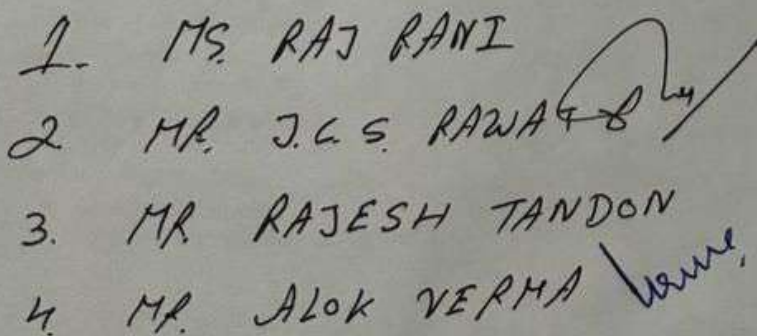 1. MS. RAJ RANI
2 MR. J.C.S. RAWAT
3. MR. RAJESH TANDON
4. MR. ALOK VERMA